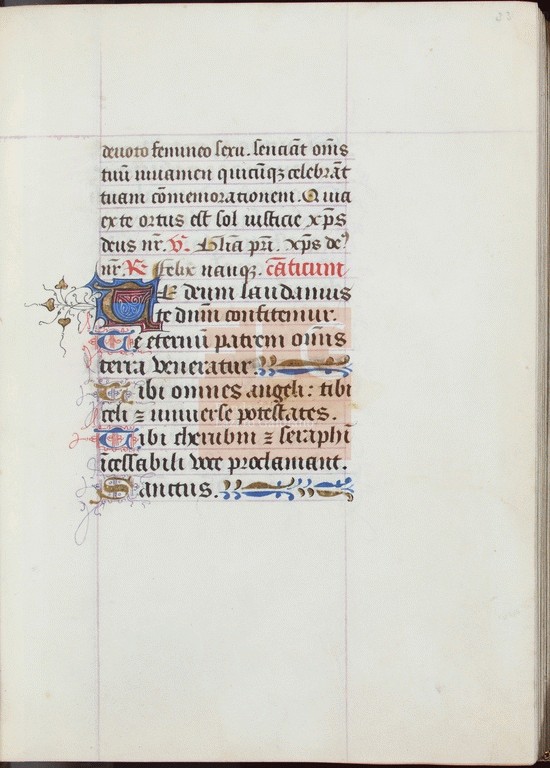 23
deuoto femineo sexu. senciāt om̄s
tuū iuuamen quicūqꝫ celebrāt
tuam cōmemorationem. Quia
ex te ortus est sol iusticie xp̄s
deus nr̄. V. Gl̄ia pr̄i. xp̄s deꝰ
nr̄. R Felix nāqꝫ. cāticum
Te deum laudamus
te dn̄m confitemur.
Te eternū patrem om̄is
terra veneratur
Tibi omnes angeli: tibi
celi ⁊ uniuerse potestates.
Tibi cherubin ⁊ seraphī
īcessabili voce proclamant.
Sanctus.